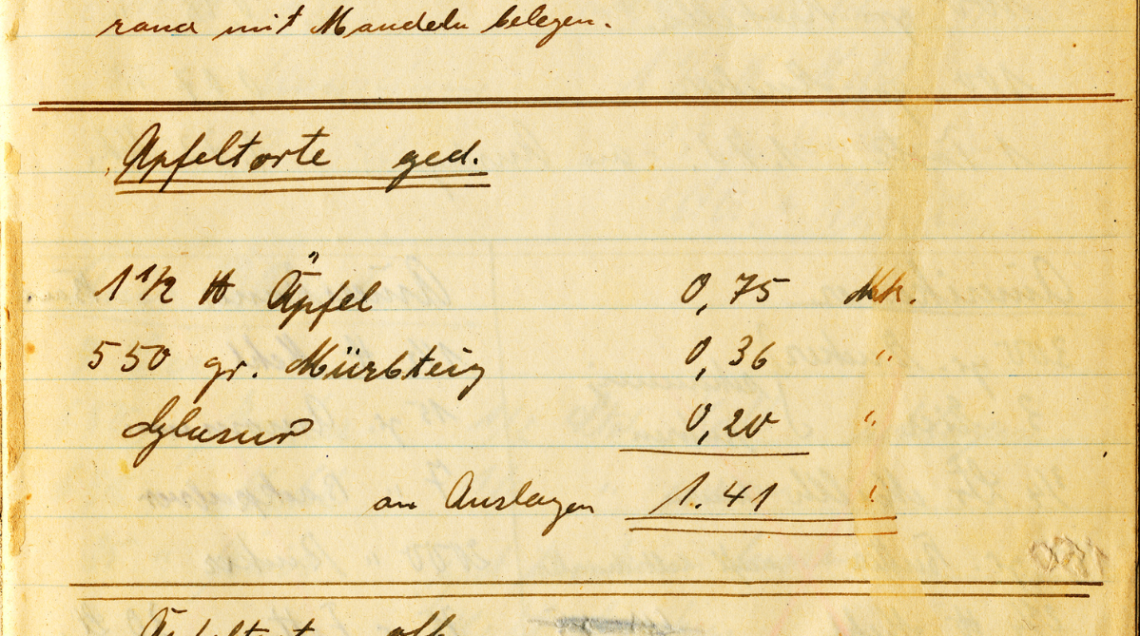 rand mit Mandeln belegen.
Apfeltorte ged.
1 1/2 ℔ Äpfel 0,75 Mk.
550 gr. Mürbteig 0,36 "
Glasur 0,20 "
an Auslagen 1.41 "
Apfeltort off